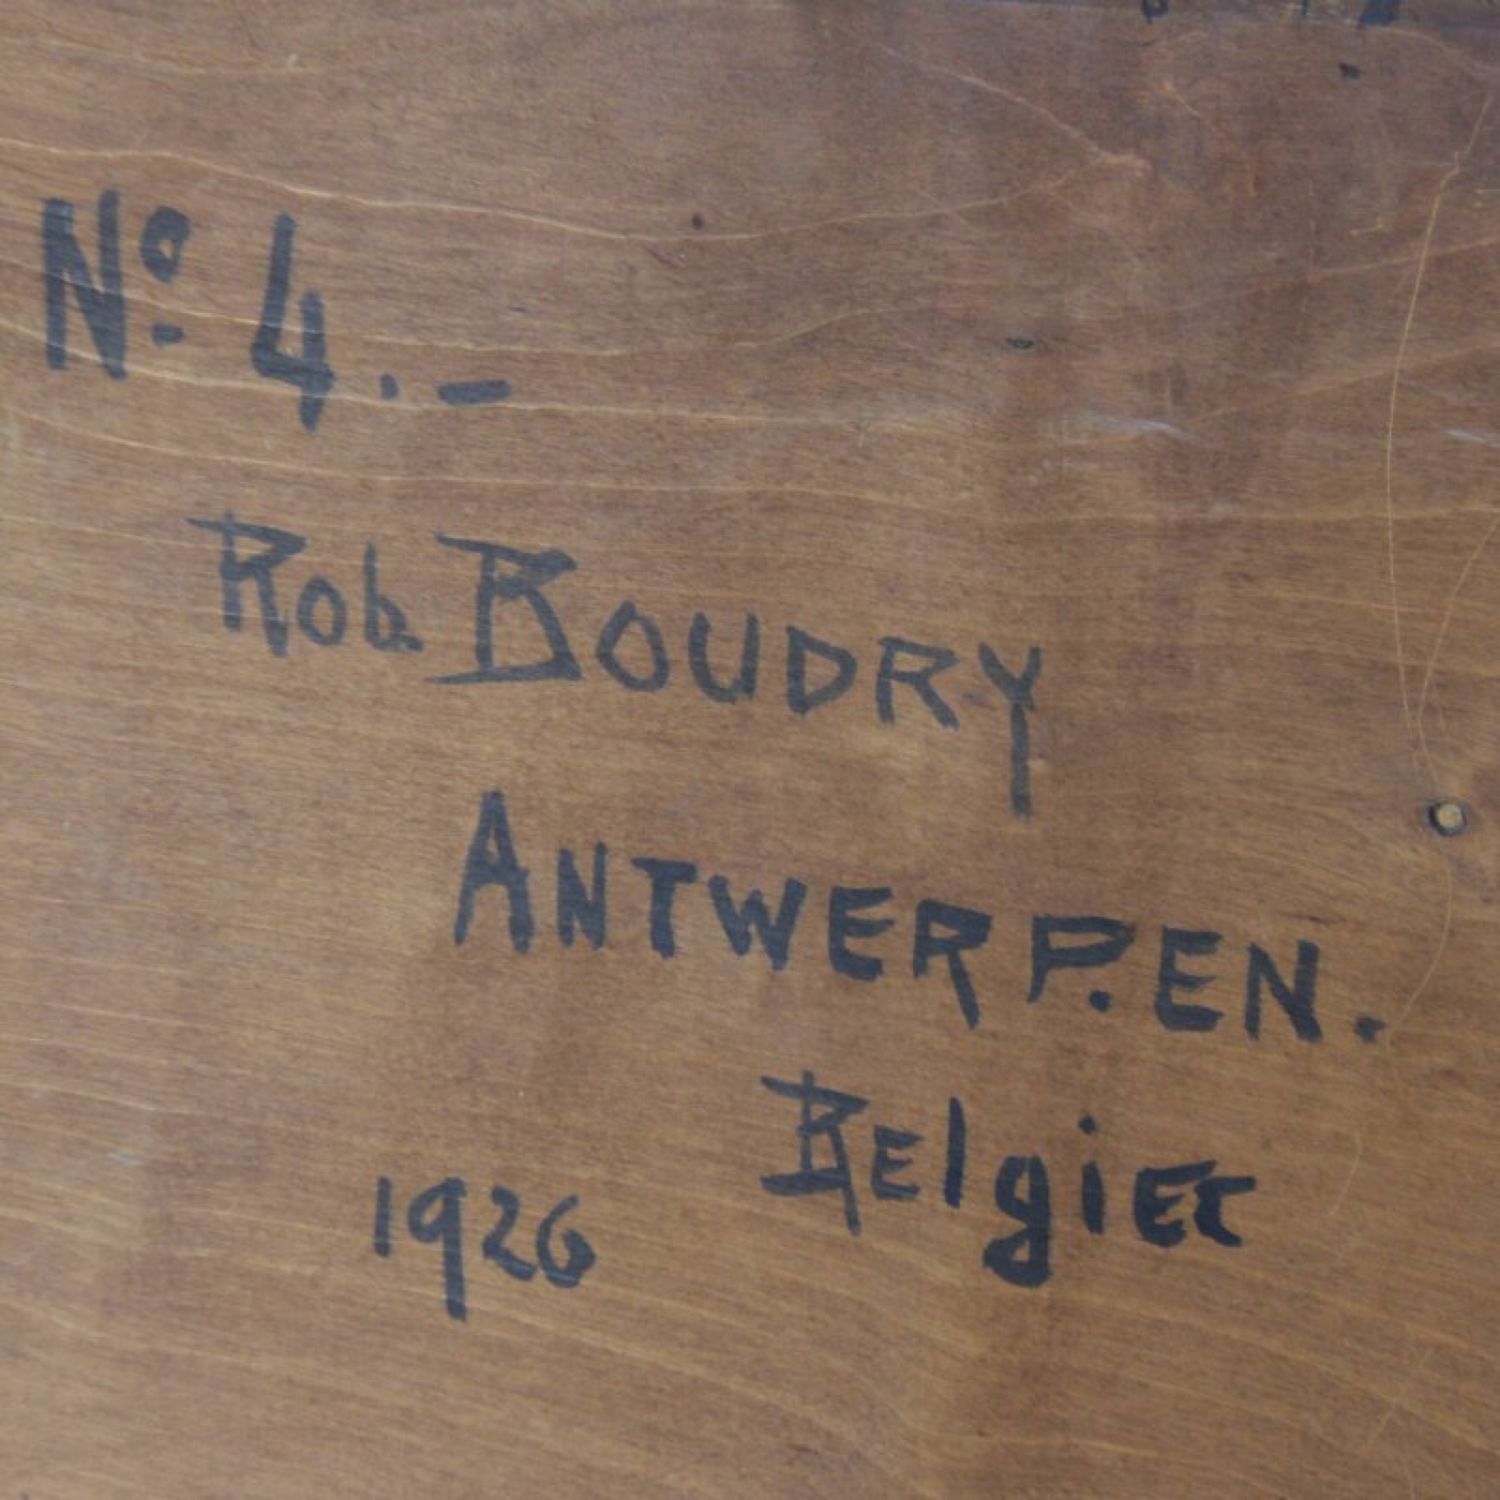 Nº 4.–
Rob. BOUDRY
ANTWERP.EN.
BElgiEË
1926